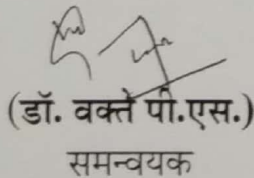 (डॉ. वक्ते पी.एस.)
समन्वयक